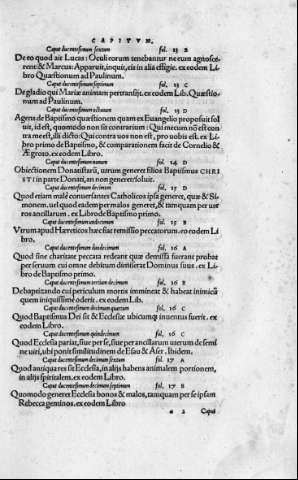 CAPITVM.
Caput ducentesimum sextum fol. 13 B
De eo quod ait Lucas: Oculi eorum tenebantur ne eum agnosce
rent & Marcus: Apparuit, inquit, eis in alia effigie. ex eodem Li
bro Quæstionum ad Paulinum.
Caput ducentesimum septimum fol. 13 C
De gladio qui Mariæ animam pertransijt. ex eodem Lib. Quæstio
num ad Paulinum.
Caput ducentesimum octauum fol. 13 D
Agens de Baptismo quæstionem quam ex Euangelio proposuit sol
uit, id est, quomodo non sit contrarium: Qui mecum nō est con
tra me est, illi dicto: Qui contra vos non est, pro uobis est. ex Li
bro primo de Baptismo, & comparationem facit de Cornelio &
Ægroto. ex eodem Libro.
Caput ducentesimum nonum fol. 14 D
Obiectionem Donatistarū, utrum generet filios Baptismus CHRI
STI in parte Donati, an non generet soluit.
Caput ducentesimum decimum fol. 15 D
Quod etiam malè conuersantes Catholicos ipsa generet, quæ & Si
monem. uel quod eadem per malos generet, & tanquam per ute
ros ancillarum. ex Libro de Baptismo primo.
Caput ducentesimum undecimum fol. 15 B
Vtrum apud Hæreticos hæc fiat remissio peccatorum. eodem Li
bro.
Caput ducentesimum duodecimum fol. 16 A
Quod sine charitate peccata redeant quæ demissa fuerant probat
per seruum cui omne debitum dimiserat Dominus suus. ex Li
bro de Baptismo primo.
Caput ducentesimum tertium decimum fol. 16 B
De baptizando cui periculum mortis imminet & habeat inimicū
quem iniquissimè oderit. ex eodem Lib.
Caput ducentesimum quartum decimum fol. 16 C
Quod Baptismus Dei sit & Ecclesiæ ubicunq; inuentus fuerit. ex
eodem Libro.
Caput ducentesimum quindecimum fol. 16 C
Quod Ecclesia pariat, siue per se, siue per ancillarum uterum de semi
ne uiri, ubi ponit similitudinem de Esau & Aser. Ibidem.
Caput ducentesimum decimum sextum fol. 17 A
Quod antiqua res sit Ecclesia, in alijs habens animalem portionem,
in alijs spiritalem. ex eodem Libro.
Caput ducentesimum decimum septimum fol. 17 B
Quomodo generet Ecclesia bonos & malos, tanquam per se ipsam
Rebecca geminos. ex eodem Libro
a 2 Caput